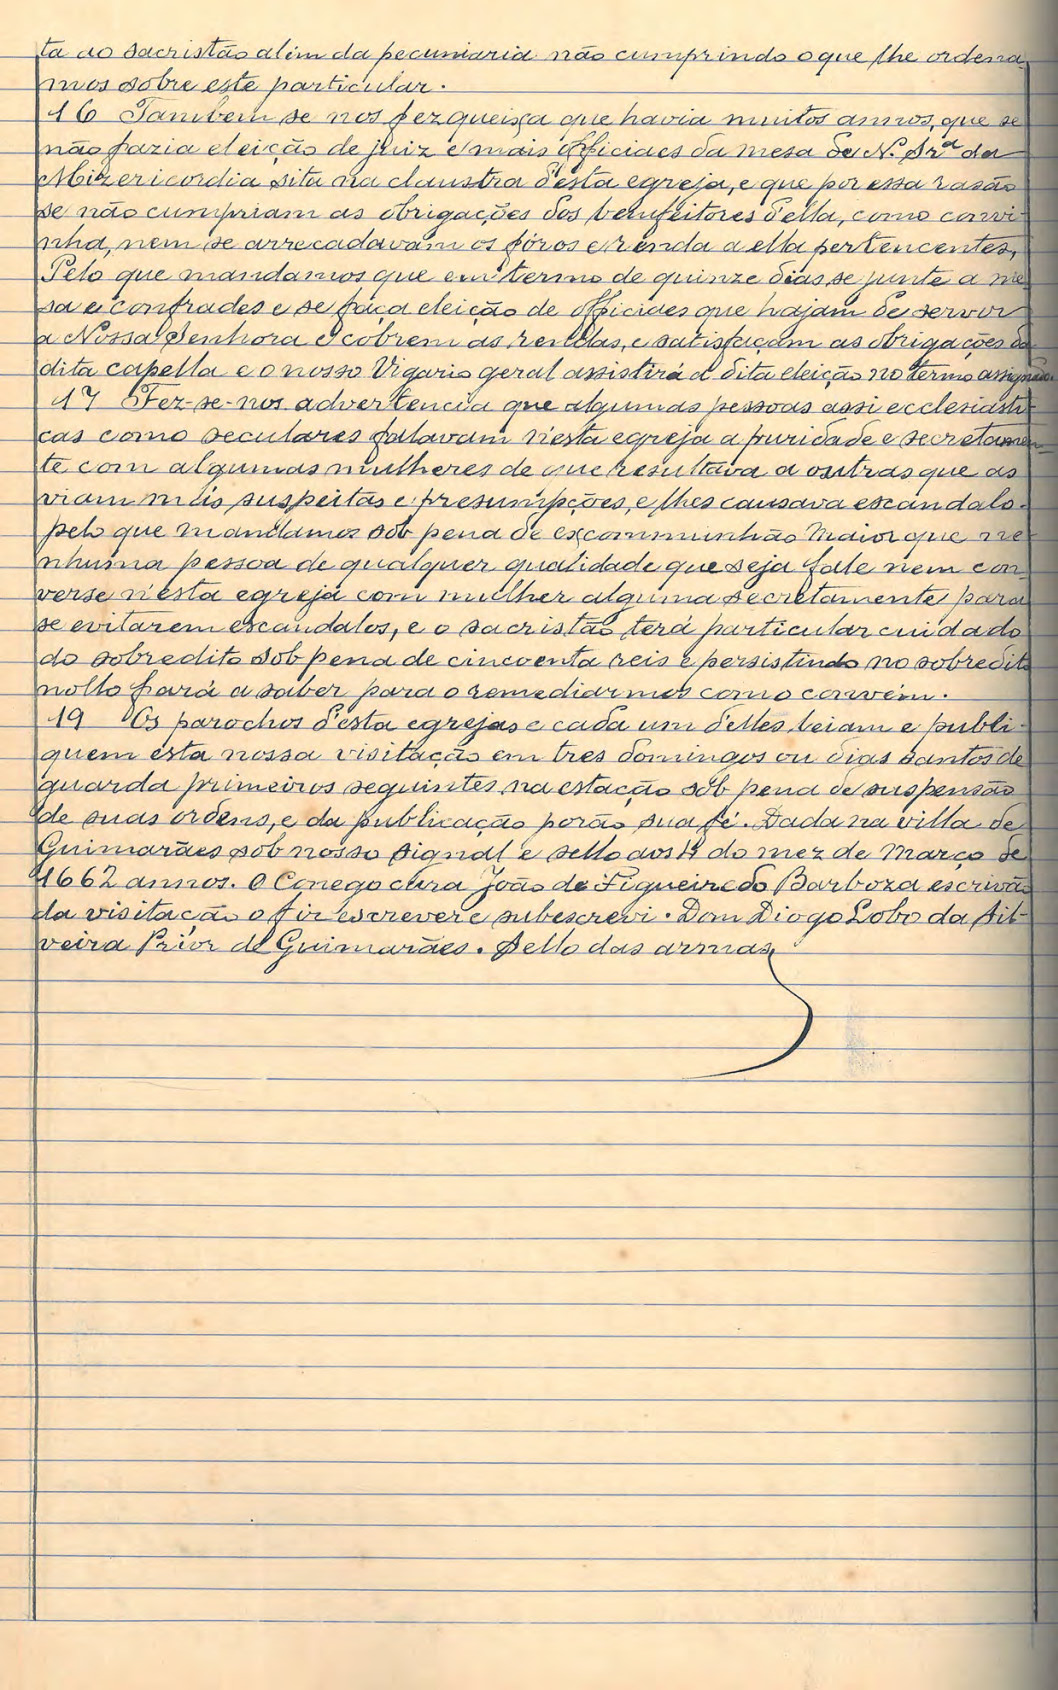 ta ao sacristão além da pecuniaria não cumprindo o que lhe ordena-
mos sobre este particular.
16 Tambem se nos fez queixa que havia muitos annos, que se
não fazia eleição de juiz e mais officiaes da mesa de N. Srª da
Mizericordia sita na claustra d'esta egreja, e que por essa rasão
se não cumpriam as obrigações dos bemfeitores d'ella, como convi-
nha, nem se arrecadavam os fóros e renda a ella pertencentes,
Pelo que mandamos que em termo de quinze dias se junte a me-
sa e confrades e se faça eleição de officiaes que hajam de servir
a Nossa Senhora e cobrem as rendas, e satisfaçam as obrigações da
dita capella e o nosso Vigario geral assistirá a dita eleição no termo assignado.
17 Fez-se-nos advertencia que algumas pessoas assi ecclesiasti-
cas como seculares falavam n'esta egreja a puridade e secretamen-
te com algumas mulheres de que resultava a outras que as
viam más suspeitas e presumpções, e lhes causava escandalo.
pelo que mandamos sob pena de excommunhão Maior que ne-
nhuma pessoa de qualquer qualidade que seja fale nem con-
verse n'esta egreja com mulher alguma secretamente para
se evitarem escandalos, e o sacristão terá particular cuidado
do sobredito sob pena de cincoenta reis e persistindo no sobredito
nollo fará a saber para o remediarmos como convém.
19 Os parochos d'esta egrejas e cada um d'elles leiam e publi-
quem esta nossa visitação em tres domingos ou dias santos de
guarda primeiros seguintes na estação sob pena de suspensão
de suas ordens, e da publicação porão sua fé. Dada na villa de
Guimarães sob nosso signal e sello aos do mez de Março de
1662 annos. O Conego cura João de Figueiredo Barboza escrivão
da visitação o fiz escrever e subescrevi. Dom Diogo Lobo da Sil-
veira Prior de Guimarães. Sello das armas